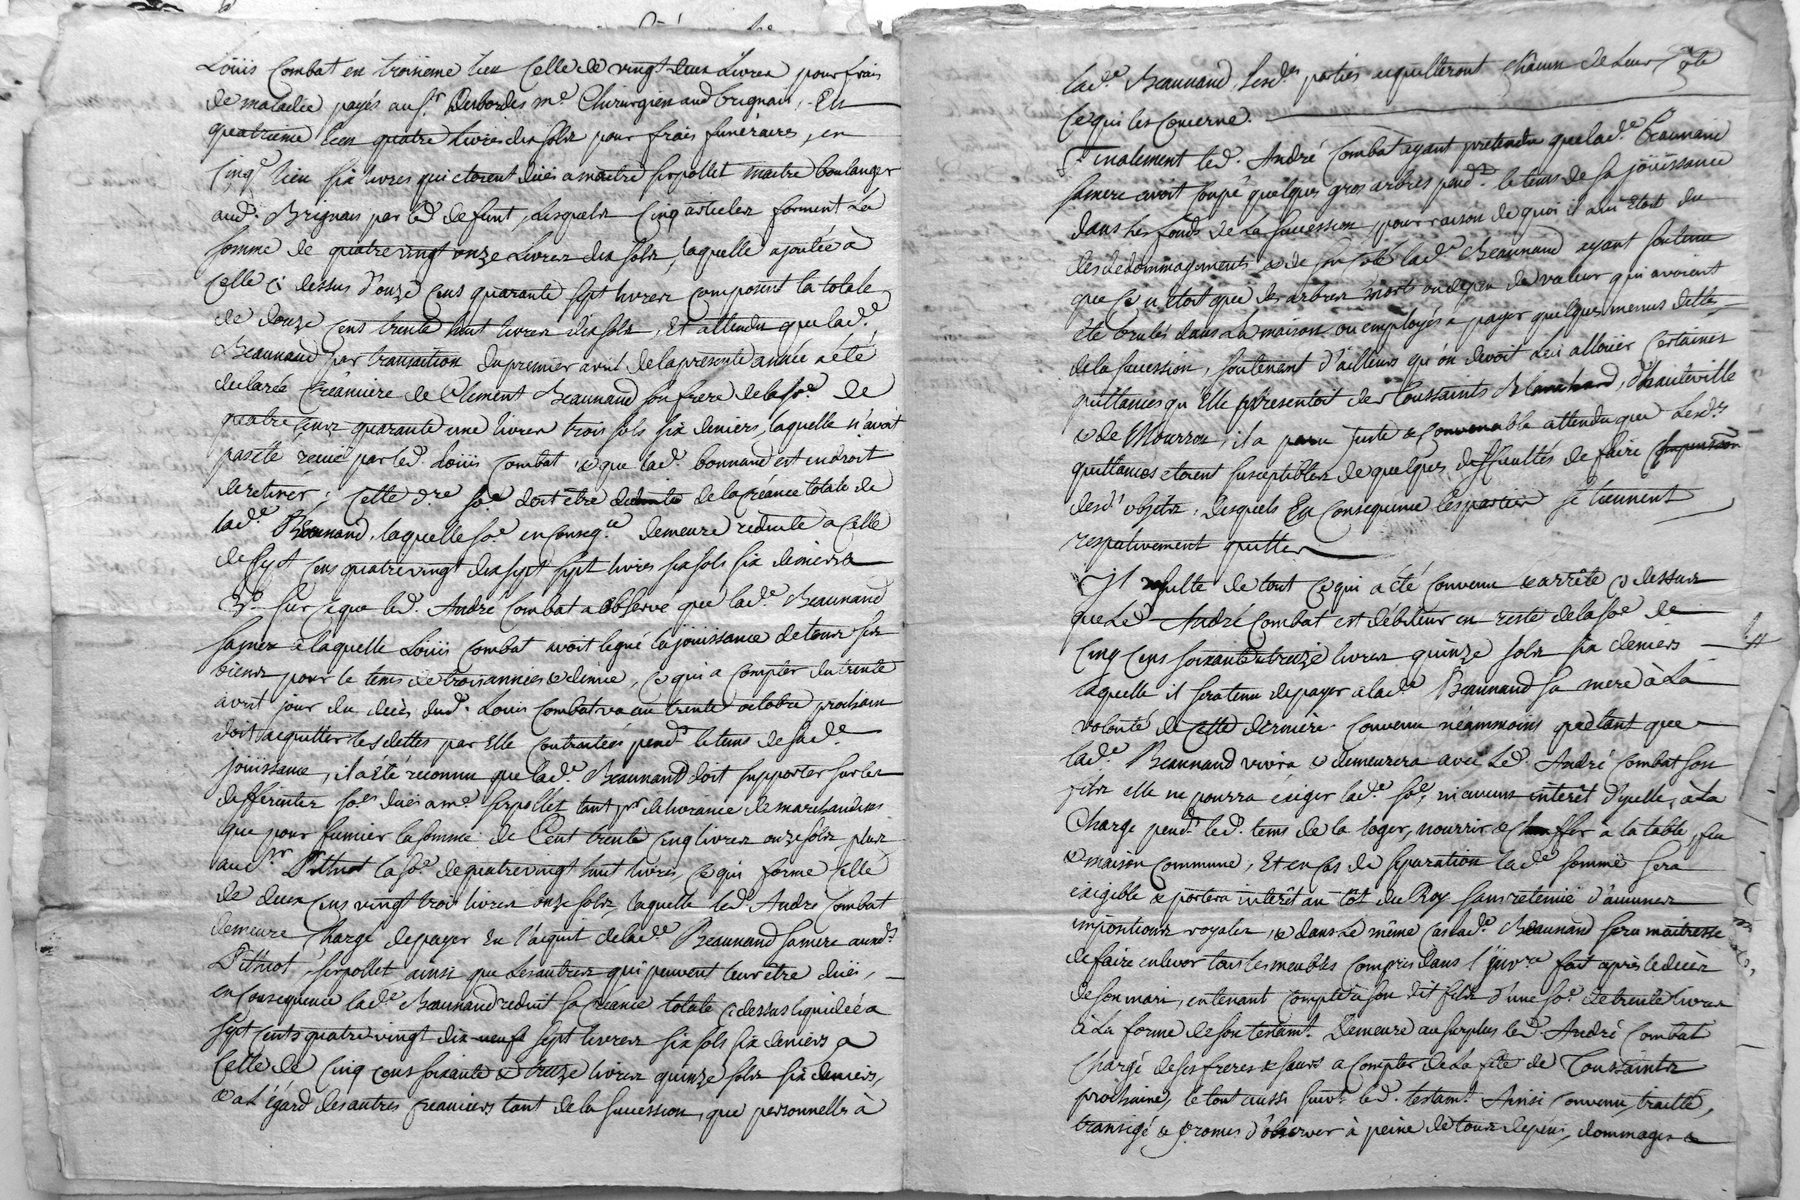 Loüis Combat en troisieme lieu Celle de vingt deux Livres pour frais
de maladie payés au Sr. Desbordes me. Chirurgien aud. Brignais, En
quatrieme lieu quatre livres dix sols pour frais funéraires, en
Cinqe. lieu six livres qui etoient düës a maitre Serpollet maitre boulanger
aud. Brignais par led. defunt, Lesquels Cinq articles forment La
somme de quatre vingt onze Livres dix sols, laquelle ajoutée à
Celle ci dessus d'onze cens quarante sept livres composent la totale
de douze cens trente huit livres dix sols, Et attendu que lad.e
Beaunand par transaction du premier avril de la presente année a été
declarée Créanciere de Clement Beaunand son frere de la so.e de
quatre cens quarante une livres trois sols six deniers, laquelle n'avoit
pas été reçüe par led. Loüis Combat, & que lad.e bonnand est en droit
de retirer; Cette d.re so.e doit être déduite de la créance totale de
lad.e Beaunand, laquelle so.e en conseq.ce demeure reduite a Celle
de Sept cens quatre vingt dix sept livres six sols six deniers
3°. Sur ce que led. André Combat a observé que lad.e Beaunand
sa mere a laquelle Loüis Combat avoit legué la joüissance de tous ses
biens pour le tems de trois années & demie, ce qui a compter du trente
avril jour du décès dud. Louis Combat va au trente octobre prochain
doit acquitter les dettes par Elle contractées pend.t le tems de sad.e
joüissance, il a été reconnu que lad.e Beaunand doit supporter sur les
differentes so.es düës a me. Serpollet tant pr. delivrance de marchandises
que pour fumier la somme de Cent trente Cinq livres onze sols, plus
au Sr. Pithiot la so.e de quatre vingt huit livres, ce qui forme Celle
de deux cens vingt trois livres onze sols, laquelle led. André Combat
demeure Chargé de payer En l'acquit de lad.e Beaunand sa mere auxd.s
Pithiot, Serpollet ainsi que Les autres qui peuvent leur être düës,
en consequence lad.e Beaunand reduit sa créance totale ci dessus liquidée a
sept cents quatre vingt dix sept livres six sols six deniers a
Celle de Cinq cens soixante & treize livres quinze sols six deniers,
& a L'égard des autres créanciers tant de la succession, que personnels à
lad.e Beaunand, Lesd.es parties acquitteront chacun de Leur Côté
Ce qui les concerne.
Finalement led. André Combat ayant pretendu que lad.e Beaunand
sa mere avoit coupé quelques gros arbres pend.t le tems de sa joüissance
dans Les fonds de La succession, pour raison de quoi il avi Etoit du
des dedommagements & de son coté lad.e Beaunand ayant soutenu
que ce n'etoit que des arbres morts ou de peu de valeur qui avoient
été brulés dans La maison ou employés a payer quelques menues dettes
de la succession, soutenant d'ailleurs qu'on devoit Lui alloüer certaines
quittances qu'Elle presentoit des Toussaints Blanchard, d'hauteville
& de Mourron, il a paru juste & convenable attendu que Lesd.s
quittances etoient susceptibles de quelques difficultés de faire Compensation
desd.s objets, desquels En consequence les parties se tiennent
respectivement quittes.
Il resulte de tout ce qui a été convenu & arrêté ci dessus
que Led. André Combat est débiteur en reste de la so.e de
Cinq cens soixante & treize livres quinze sols six deniers
laquelle il sera tenu de payer a lad.e Beaunand sa mere à La
volonté de Cette derniere. convenu néammoins que tant que
lad.e Beaunand vivra & demeurera avec Led. André Combat son
fils elle ne pourra éxiger lad.e so.e, ni aucuns intérêt d'ycelle, à La
Charge pend.t led. tems de la loger, nourrir & chauffer à la table, feu
& maison commune, Et en cas de separation lad.e somme sera
éxigible & portera intérêt au tôt du Roy sans retenüe d'aucunes
impositions royales, & dans Le même cas lad.e Beaunand sera maitresse
de faire enlever tous les meubles compris dans l'inv.re fait après le decès
de son mari, en tenant compte à son dit fils d'une so.e de trente livres
à La forme de son testam.t Demeure au surplus led. André Combat
Chargé de ses freres & sœurs a compter de La fête de Toussaints
prochaine, le tout aussi suiv.t led. testam.t Ainsi convenu, traitté,
transigé & promis d'observer à peine de tous depens, dommages &